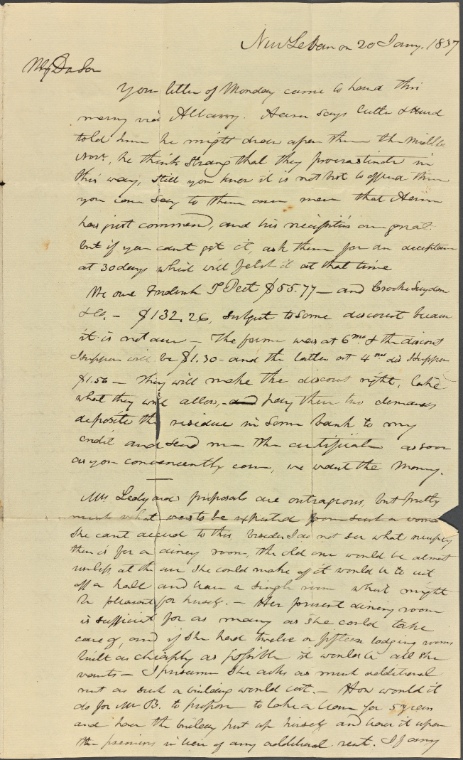 New Lebanon 20 Jany. 1837
My D Son
Your letter of Monday came to hand this
via Albany. says Cutler & Hurd
told him he might draw upon them the Middle
he thinks strang that they procrastinate in
this way, still you know it is not best to offend them
you can say to them once more that
has just commenced, and his receipts are
but if you cant get it ask them for an acceptance
at 30 days which will fetch it at that time
We owe Fredrick T Peet $55.77 — and Crooke
& Co. — $132.26, Subject to some discount
it is not due — The former was at 6 mos & the discount
I suppose will be $1.30 and the latter at 4 mos do I suppose
$1.56 — they will make the discount right, take
what they will allow, pay them two demands,
deposite the residue in some bank to my
credit and send me the certificate as soon
as you conveniently can, we want the money.
Mrs Ledyard proposals are outrageous, but pretty
much what was to be expected from such a woman
She cant accede to this besides I do not see what
there is for a dineing room, the old one would be almost
useless at the she could make of it would be to cut
off a hall and have a single room which might
be pleasant for herself. — Her present dineing room
is sufficient for as many as she could take
care of, and if she had twelve or fifteen lodging rooms
built as cheaply as possible it would be all she
wants — I presume she asks as much additional
rent as such a building would cost. — How would it
do for Mr B. to propose to take a lease for 5 years
and have the building put up himself and have it upon
the premises in lieu of any additional rent. If any